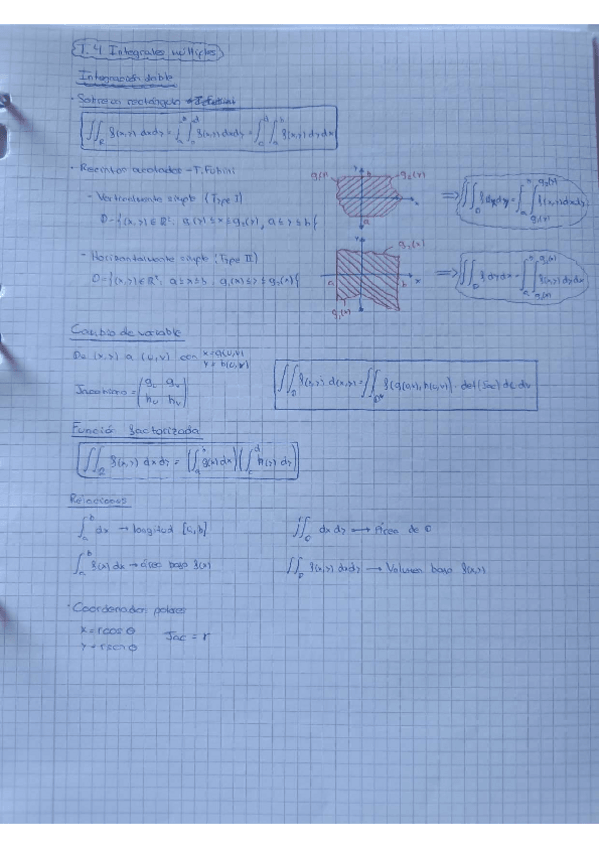 T.4 Integrales múltiples
Integración doble
· Sobre un rectángulo
∬_R f(x,y) dxdy = ∫_a^b ∫_c^d f(x,y) dxdy = ∫_c^d ∫_a^b f(x,y) dydx
· Recintos acotados - T. Fubini
- Verticalmente simple (Type I)
D={(x,y)∈R²: g₁(y)≤x≤g₂(y), a≤y≤b}
g₁(y) y g₂(y) b x a
⇒ ∬_D f dxdy = ∫_a^b ∫_{g₁(y)}^{g₂(y)} f(x,y) dxdy
- Horizontalmente simple (Type II)
D={(x,y)∈R²: a≤x≤b, g₁(x)≤y≤g₂(x)}
y g₂(x) a b x g₁(x)
⇒ ∬_D f dydx = ∫_a^b ∫_{g₁(x)}^{g₂(x)} f(x,y) dydx
Cambio de variable
De (x,y) a (u,v) con x=g(u,v) y=h(u,v)
Jacobiano = |g_u g_v h_u h_v|
∬_D f(x,y) d(x,y) = ∬_D* f(g(u,v), h(u,v)) · det(Jac) du dv
Función factorizada
∬_R f(x,y) dxdy = (∫_a^b g(x) dx)(∫_c^d h(y) dy)
Relaciones
∫_a^b dx → longitud [a,b]
∬_D dxdy → Área de D
∫_a^b f(x) dx → área bajo f(x)
∬_D f(x,y) dxdy → Volumen bajo f(x,y)
· Coordenadas polares
x = r cos θ
y = r sen θ
Jac = r